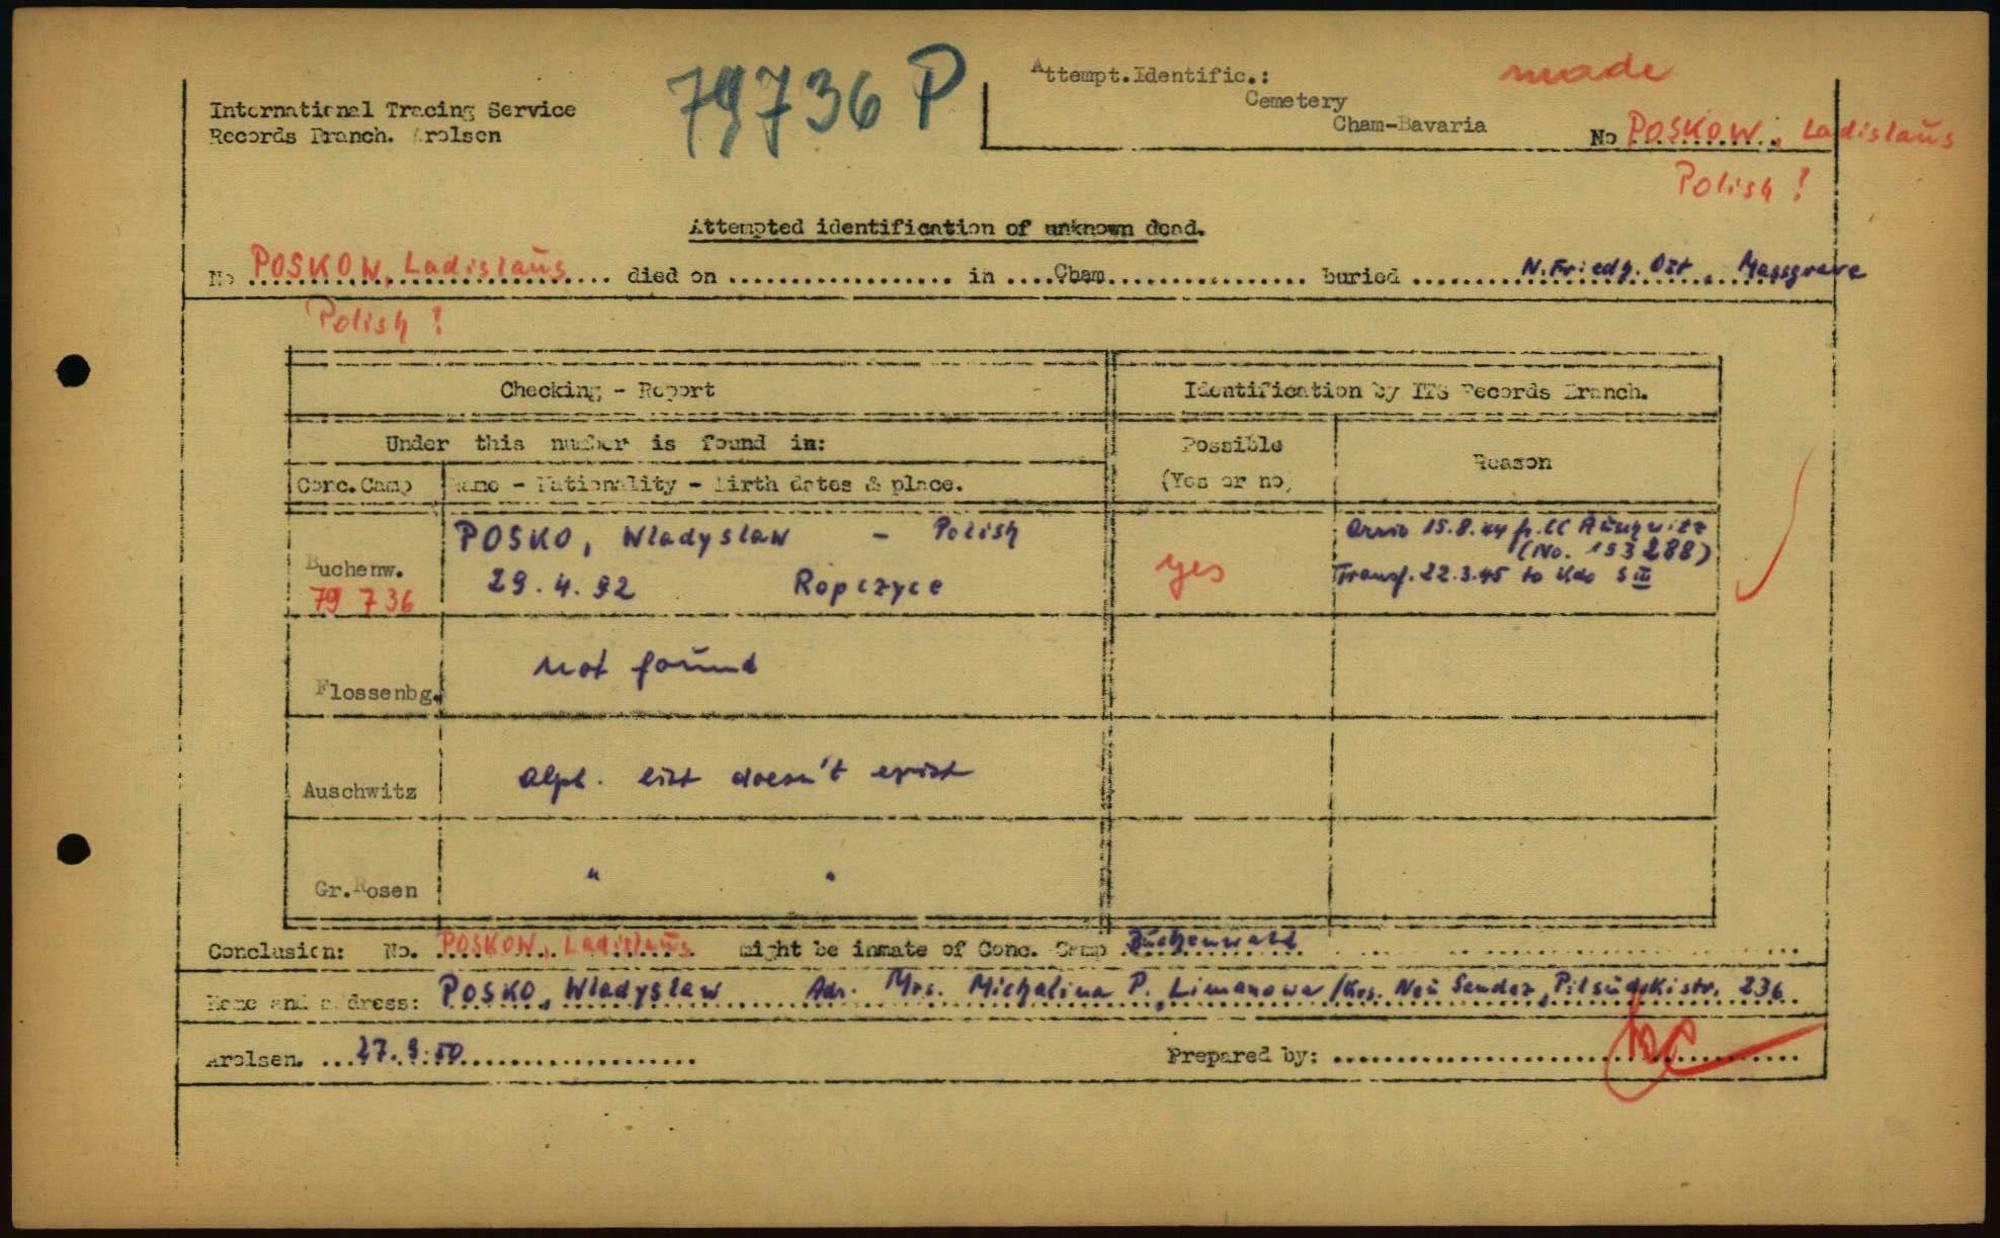 79736 P
International Tracing Service
Records Branch. Arolsen
Attempt.Identific.:
Cemetery
Cham-Bavaria
made
No POSKOW, Ladislaus
Polish!
Attempted identification of unknown dead.
No POSKOW, Ladislaus died on .................... in ....Cham................. buried N.Friedh. Ost, Massgrave
Polish!
Checking - Report
Identification by ITS Records Branch.
Under this number is found in:
Possible
(Yes or no)
Reason
Conc.Camp
Name - Nationality - Birth dates & place.
Buchenw.
79 736
POSKO, Wladyslaw - Polish
29.4.92 Ropczyce
yes
15.8.44 fr. CC
(No. 193288)
Transf. 22.3.45 to Kdo S III
Flossenbg.
not found
Auschwitz
alph. list doesn't exist
Gr.Rosen
" "
Conclusion: No. POSKOW, Ladislaus might be inmate of Conc. Camp Buchenwald
Name and address: POSKO, Wladyslaw Adr. Mrs. Michalina P., Limanowa /Krs. Neu Sandez, Pilsudskistr. 236
Arolsen. 27.9.50
Prepared by: